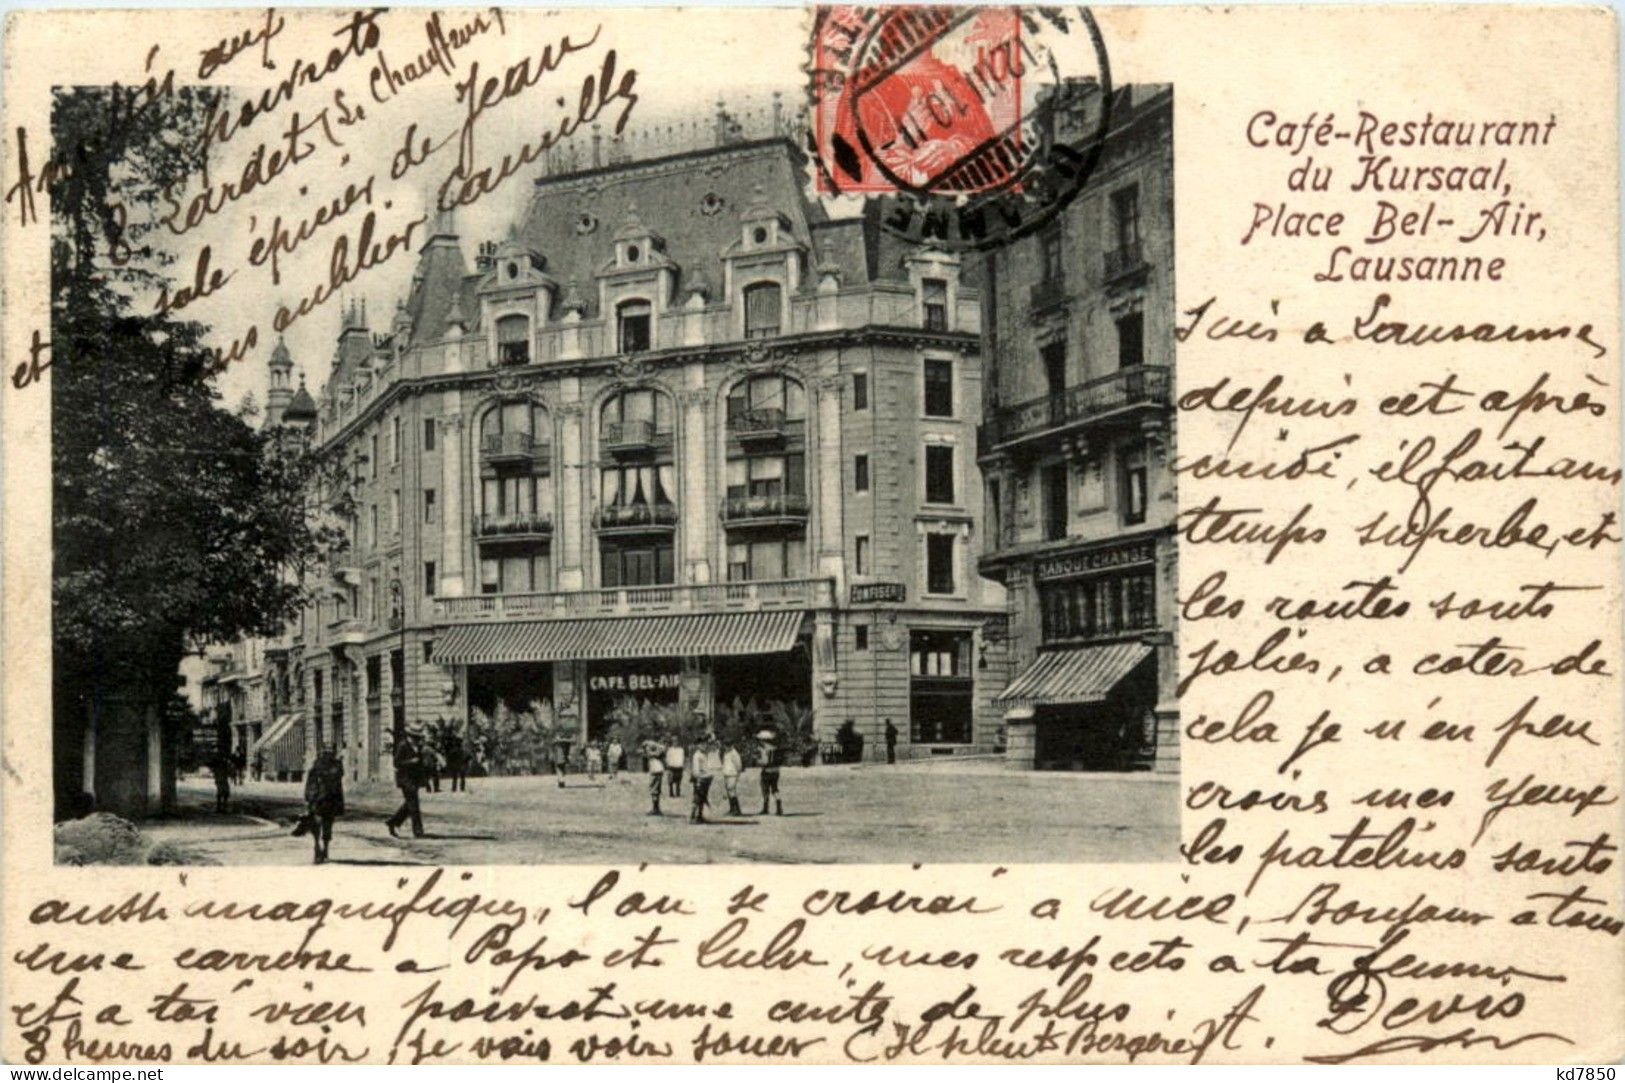 Café-Restaurant
du Kursaal,
Place Bel-Air,
Lausanne
LAUSANNE
12.VII.10.11-
CAFE BEL-AIR
BANQUE CHANGE
aux
poivrots
S. Lardet (Le Chauffeur)
sale épicier de Jean
et sans oublier Camille
Suis a Lausanne,
depuis cet après
midi, il fait un
temps superbe, et
les routes sonts
jolies, a coter de
cela je n'en peu
croire mes yeux
les patelins sonts
aussi magnifique, l'on se croirai a Nice, Bonjour a tous
une caresse a Popo et Lulu, mes respects a ta femme
et a toi vieu poivrot une cuite de plus.
A. Devis
8 heures du soir, je vais voir jouer (Il pleut Bergère)
kd7850